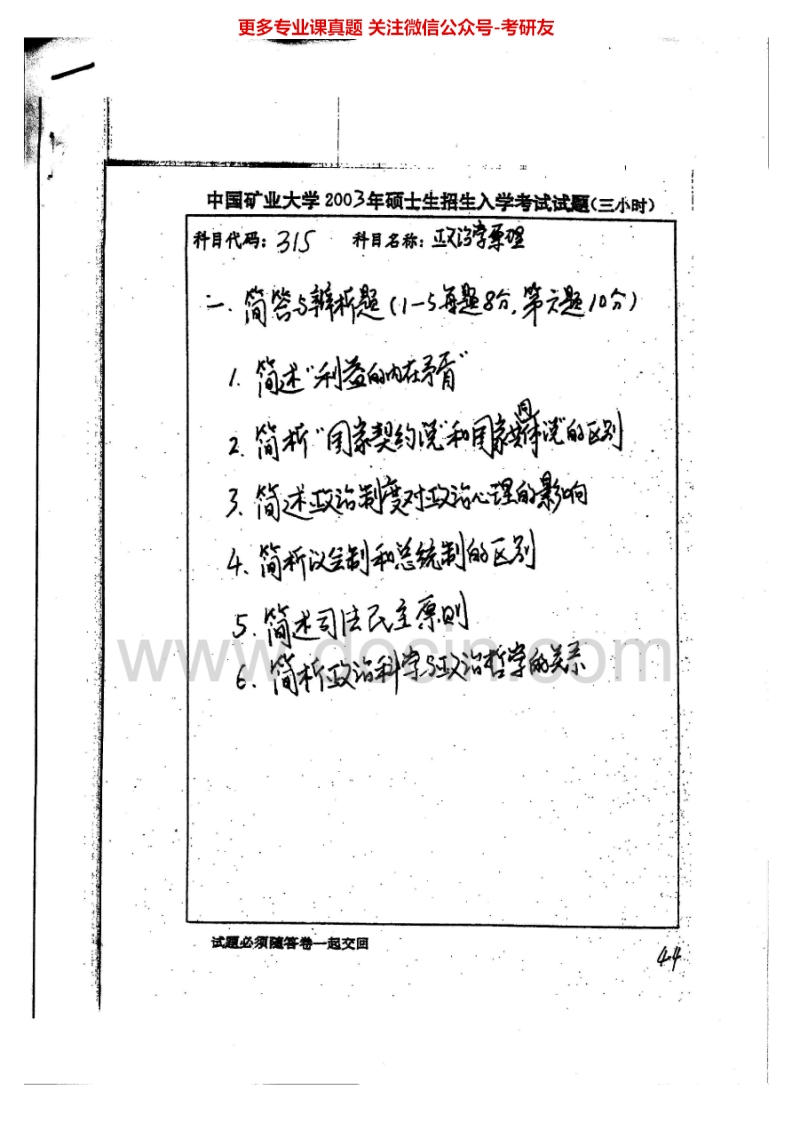 更多专业课真题 关注微信公众号-考研友
中国矿业大学2003年硕士生招生入学考试试题(三小时)
科目代码：315 科目名称：政治学原理
二、简答与辨析题(1-5每题8分,第六题10分)
1. 简述"利益的内在矛盾"
2. 简析"国家契约说"和国家共同体说"的区别
3. 简述政治制度对政治心理的影响
4. 简析议会制和总统制的区别
5. 简述司法民主原则
www.docin.com
6. 简析政治科学与政治哲学的关系
试题必须随答卷一起交回
44